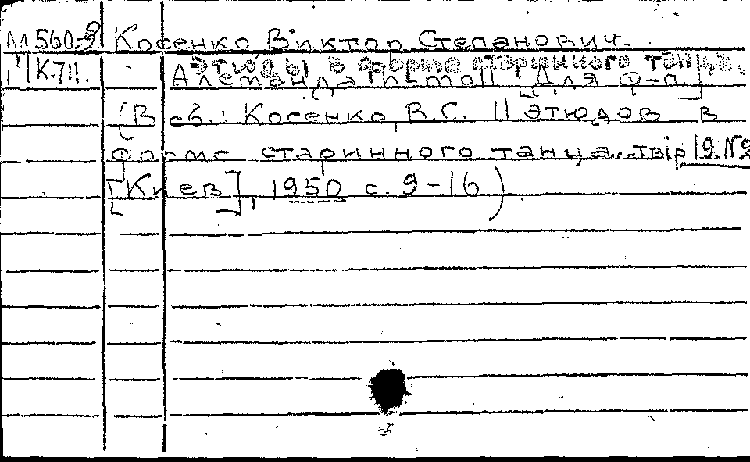 М 560-9 Косенко Виктор Степанович.
К.711. Этюды в форме старинного танца.
Алеманда № 2 [для ф-п]
(В сб.: Косенко, В.С. 11 этюдов в
форме старинного танца. твір 19. №2
[Киев], 1950 с. 9-16)